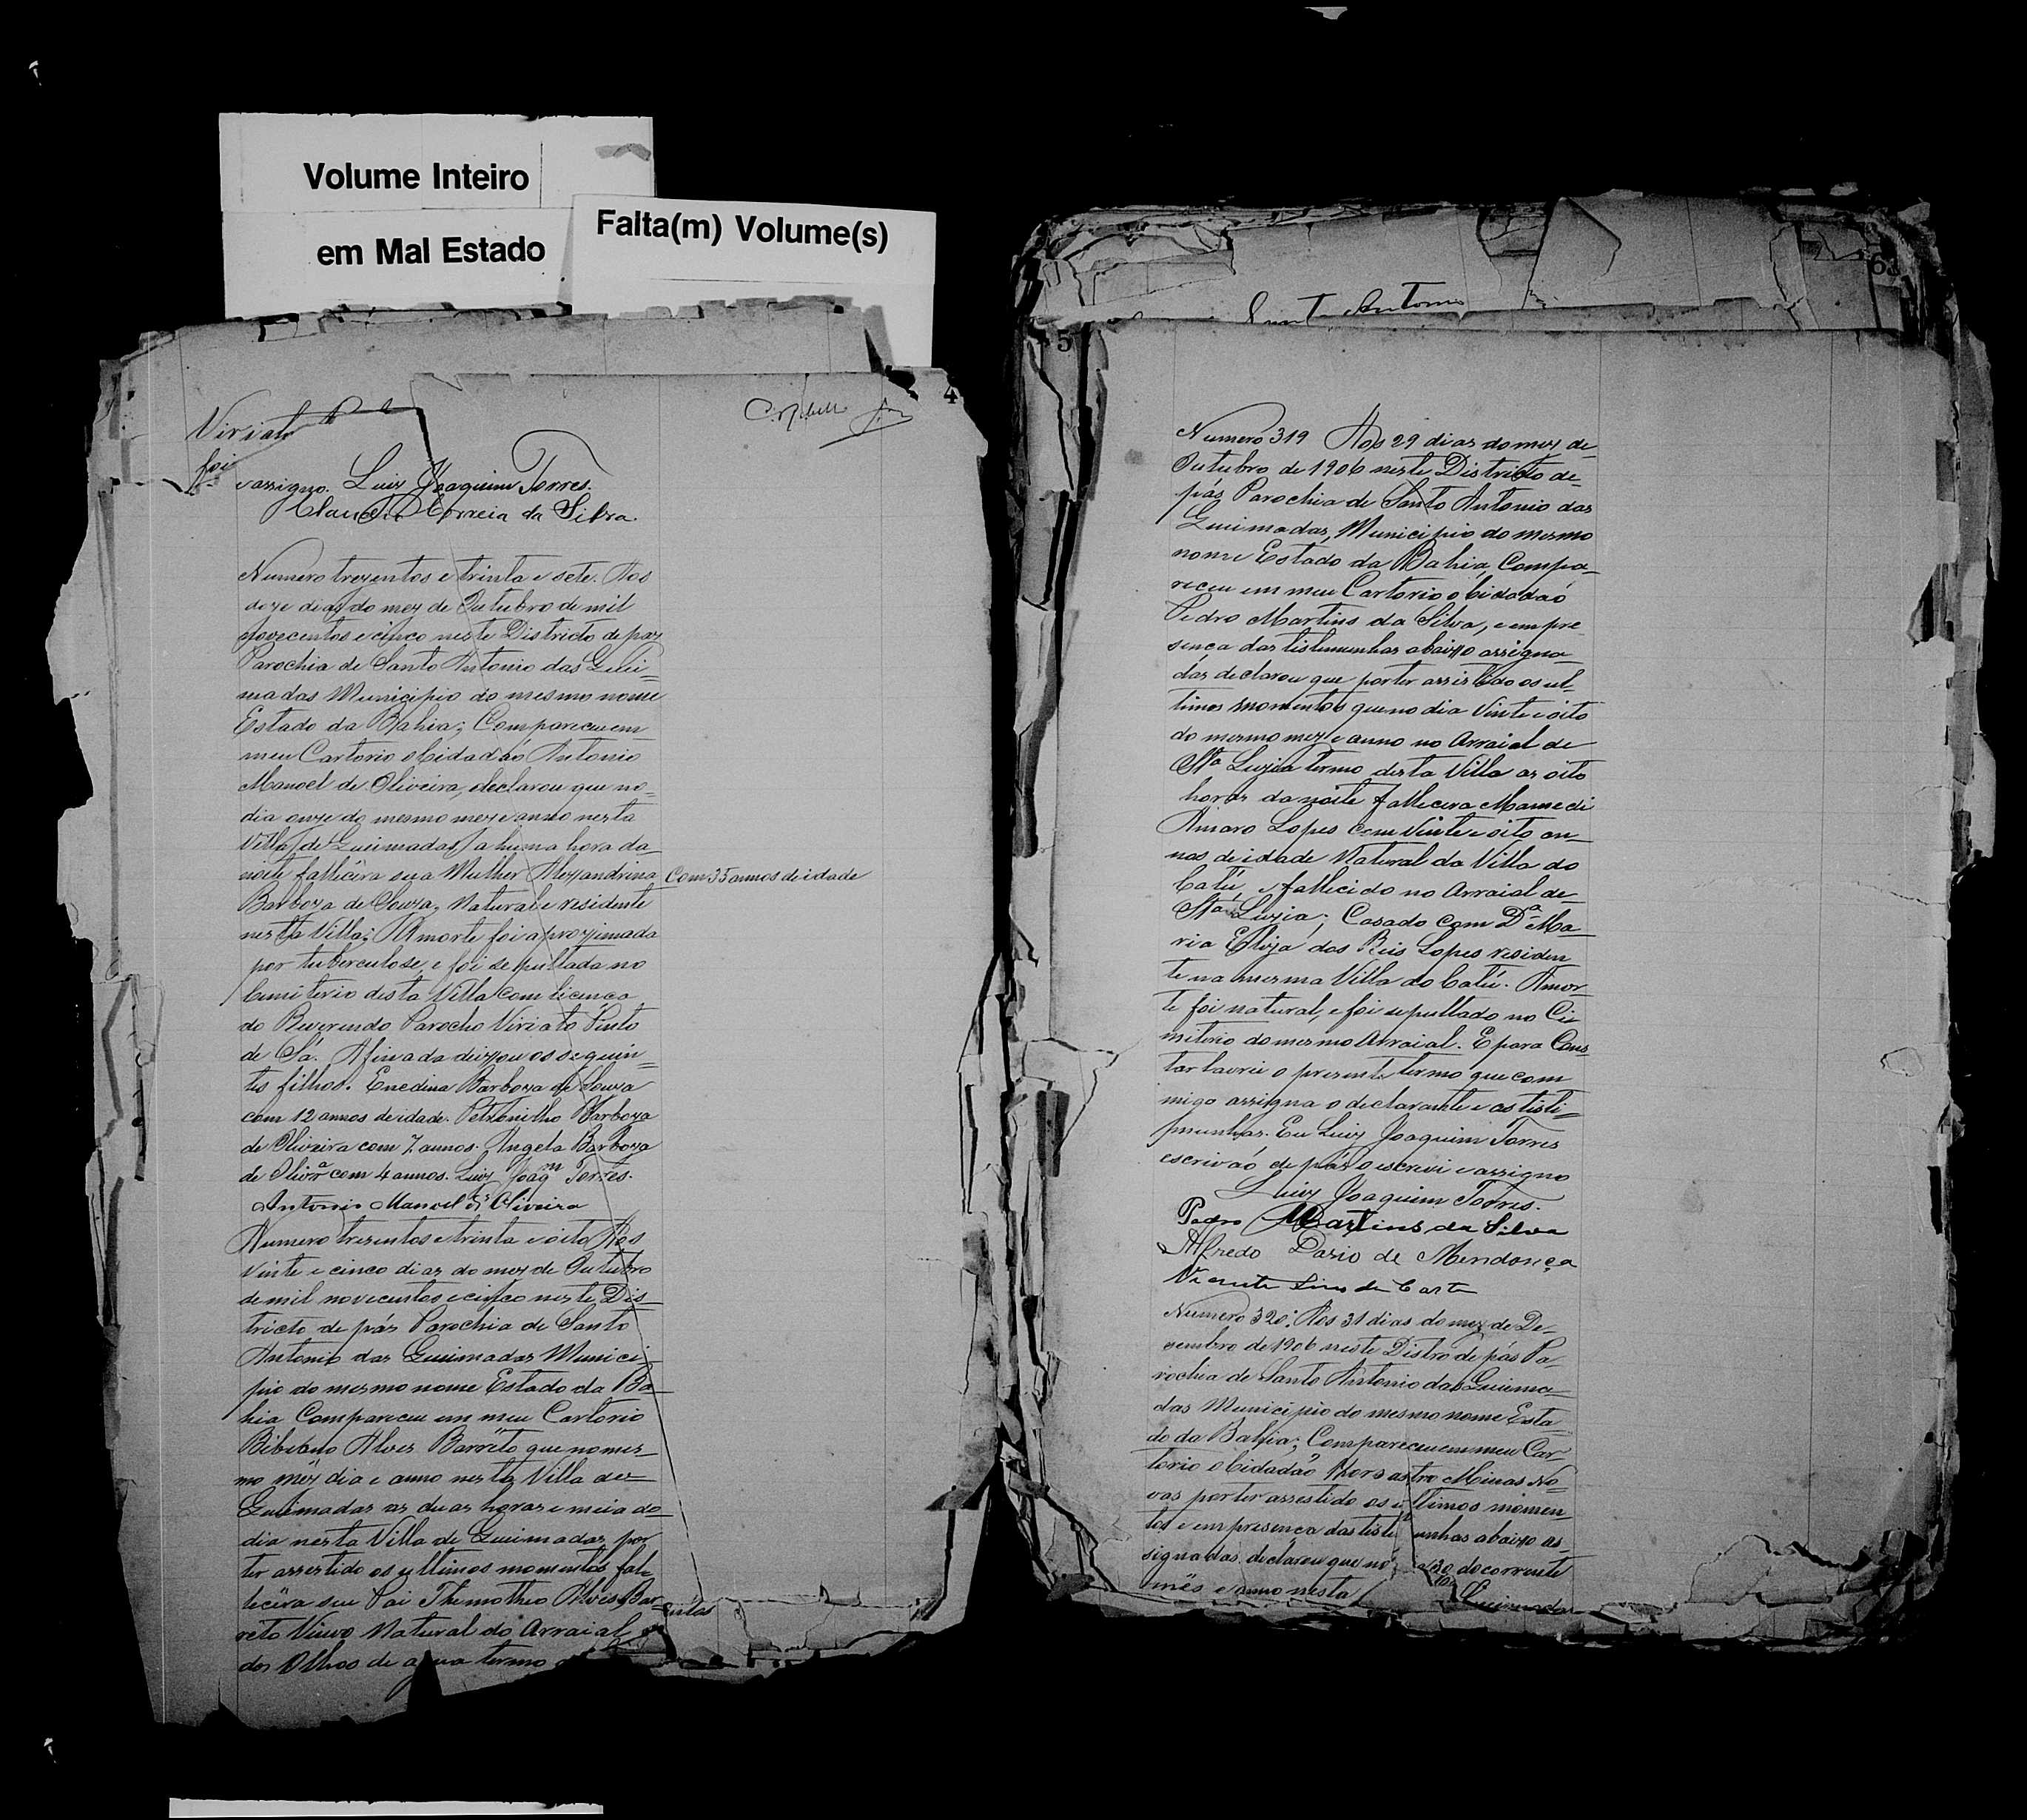 Volume Inteiro
em Mal Estado
Falta(m) Volume(s)
4
Viriato
foi
e assigno. Luiz Joaquim Torres.
Claudio Correia da Silva
Numero trezentos e trinta e sete. Aos
doze dias do mez de Outubro de mil
novecentos e cinco neste Districto de paz
Parochia de Santo Antonio das Quei=
madas Municipio do mesmo nome
Estado da Bahia; Compareceu em
meu Cartorio o Cidadão Antonio
Manoel de Oliveira, declarou que no
dia onze do mesmo mez e anno nesta
Villa de Queimadas a huma hora da
noite fallecêra sua Mulher Alexandrina
Com 35 annos de idade
Barboza de Souza, Natural e residente
nesta Villa; A morte foi aproximada
por tuberculose, e foi sepultada no
Cemiterio desta Villa com licença
do Reverendo Parocho Viriato Pinto
de Sá. A finada deixou os seguin=
tes filhos. Enedina Barboza de Souza
com 12 annos de idade. Petronilho Barboza
de Oliveira com 7 annos. Angela Barboza
de Olivrª com 4 annos. Luiz Joaqm Torres.
Antonio Manoel de Oliveira
Numero trezentos e trinta e oito Aos
vinte e cinco dias do mez de Outubro
de mil novecentos e cinco neste Dis-
tricto de pás Parochia de Santo
Antonio das Queimadas Munici-
pio do mesmo nome Estado da Ba-
hia Compareceu em meu Cartorio
Alves Barrêto que no mes-
mo mêz dia e anno nesta Villa de
Queimadas as duas horas e meia do
dia nesta Villa de Queimadas por
ter assestido os ultimos momentos fal-
lecêra seu Pai Themotheo Alves Bar-
reto Viuvo Natural do Arraial
dos Olhos de agua termo
5
6
Santo Antonio
Numero 319 Aos 29 dias do mez de
Outubro de 1906 neste Districto de
pás Parochia de Santo Antonio das
Queimadas, Municipio do mesmo
nome Estado da Bahia, Compa-
receu em meu Cartorio o Cidadão
Pedro Martins da Silva, e em pre-
sença das tistemunhas abaixo assigna-
das declarou que por ter assistido os ul-
timos momentos que no dia Vinte e oito
do mesmo mez e anno no Arraial de
Sta Luzia termo desta Villa as oito
horas da noite fallecera Mamedi
Amaro Lopes com Vinte e oito an-
nos de idade Natural da Villa do
Catú, e fallecido no Arraial de
Sta Luzia; Casado com Dª Ma-
ria Eliza dos Reis Lopes residen
te na mesma Villa do Catú. A mor-
te foi natural, e foi sepultado no Ce-
miterio do mesmo Arraial. E para Cons
tar lavrei o presente termo que com
migo assigna o declarante e as tisti=
munhas. Eu Luiz Joaquim Torres
escrivão de pás o escrevi e assigno
Luiz Joaquim Torres.
Pedro Martins da Silva
Alfredo Dario de Mendonça
Vicente
Numero 320. Aos 31 dias do mez de De-
zembro de 1906 neste Distro de pás Pa-
rochia de Santo Antonio das Queima-
das Municipio do mesmo nome Esta
do da Bahia; Compareceu em meu Car-
torio o Cidadão Minas No-
vas por ter assestido os ultimos momen
tos e em presença das tiste unhas abaixo as-
signadas declarou que no 30 do corrente
mês e anno nesta Queimadas